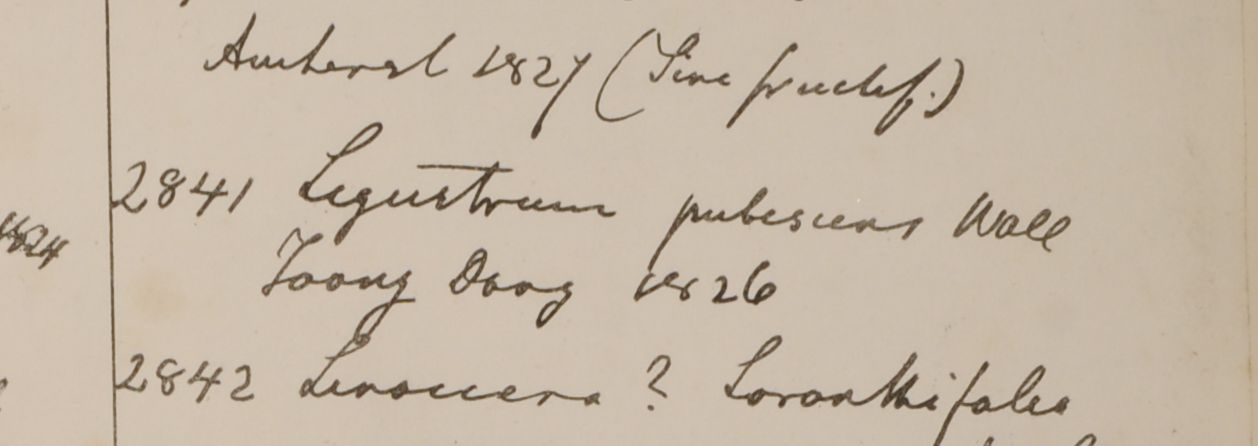 Amherst 1827 (Sine fructif.)
2841 Ligustrum pubescens Wall
Toong Dong 1826
1824
2842 Linociera ? Loranthifolia